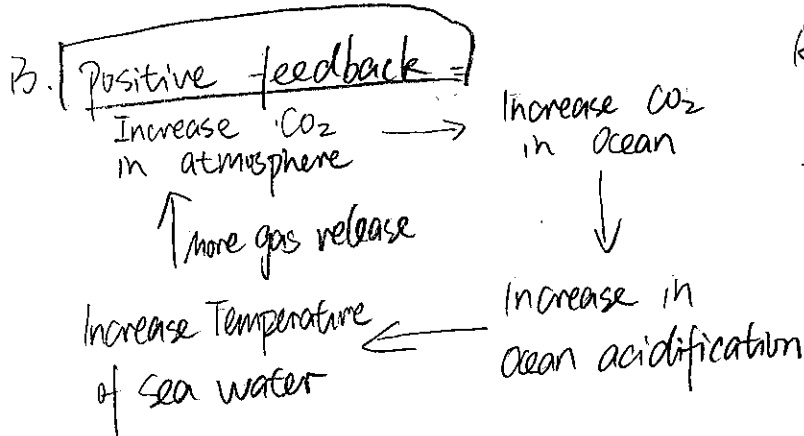 B. Positive feedback =
Increase CO₂
in atmosphere
Increase CO₂
in Ocean
Increase in
Ocean acidification
Increase Temperature
of sea water
more gas release